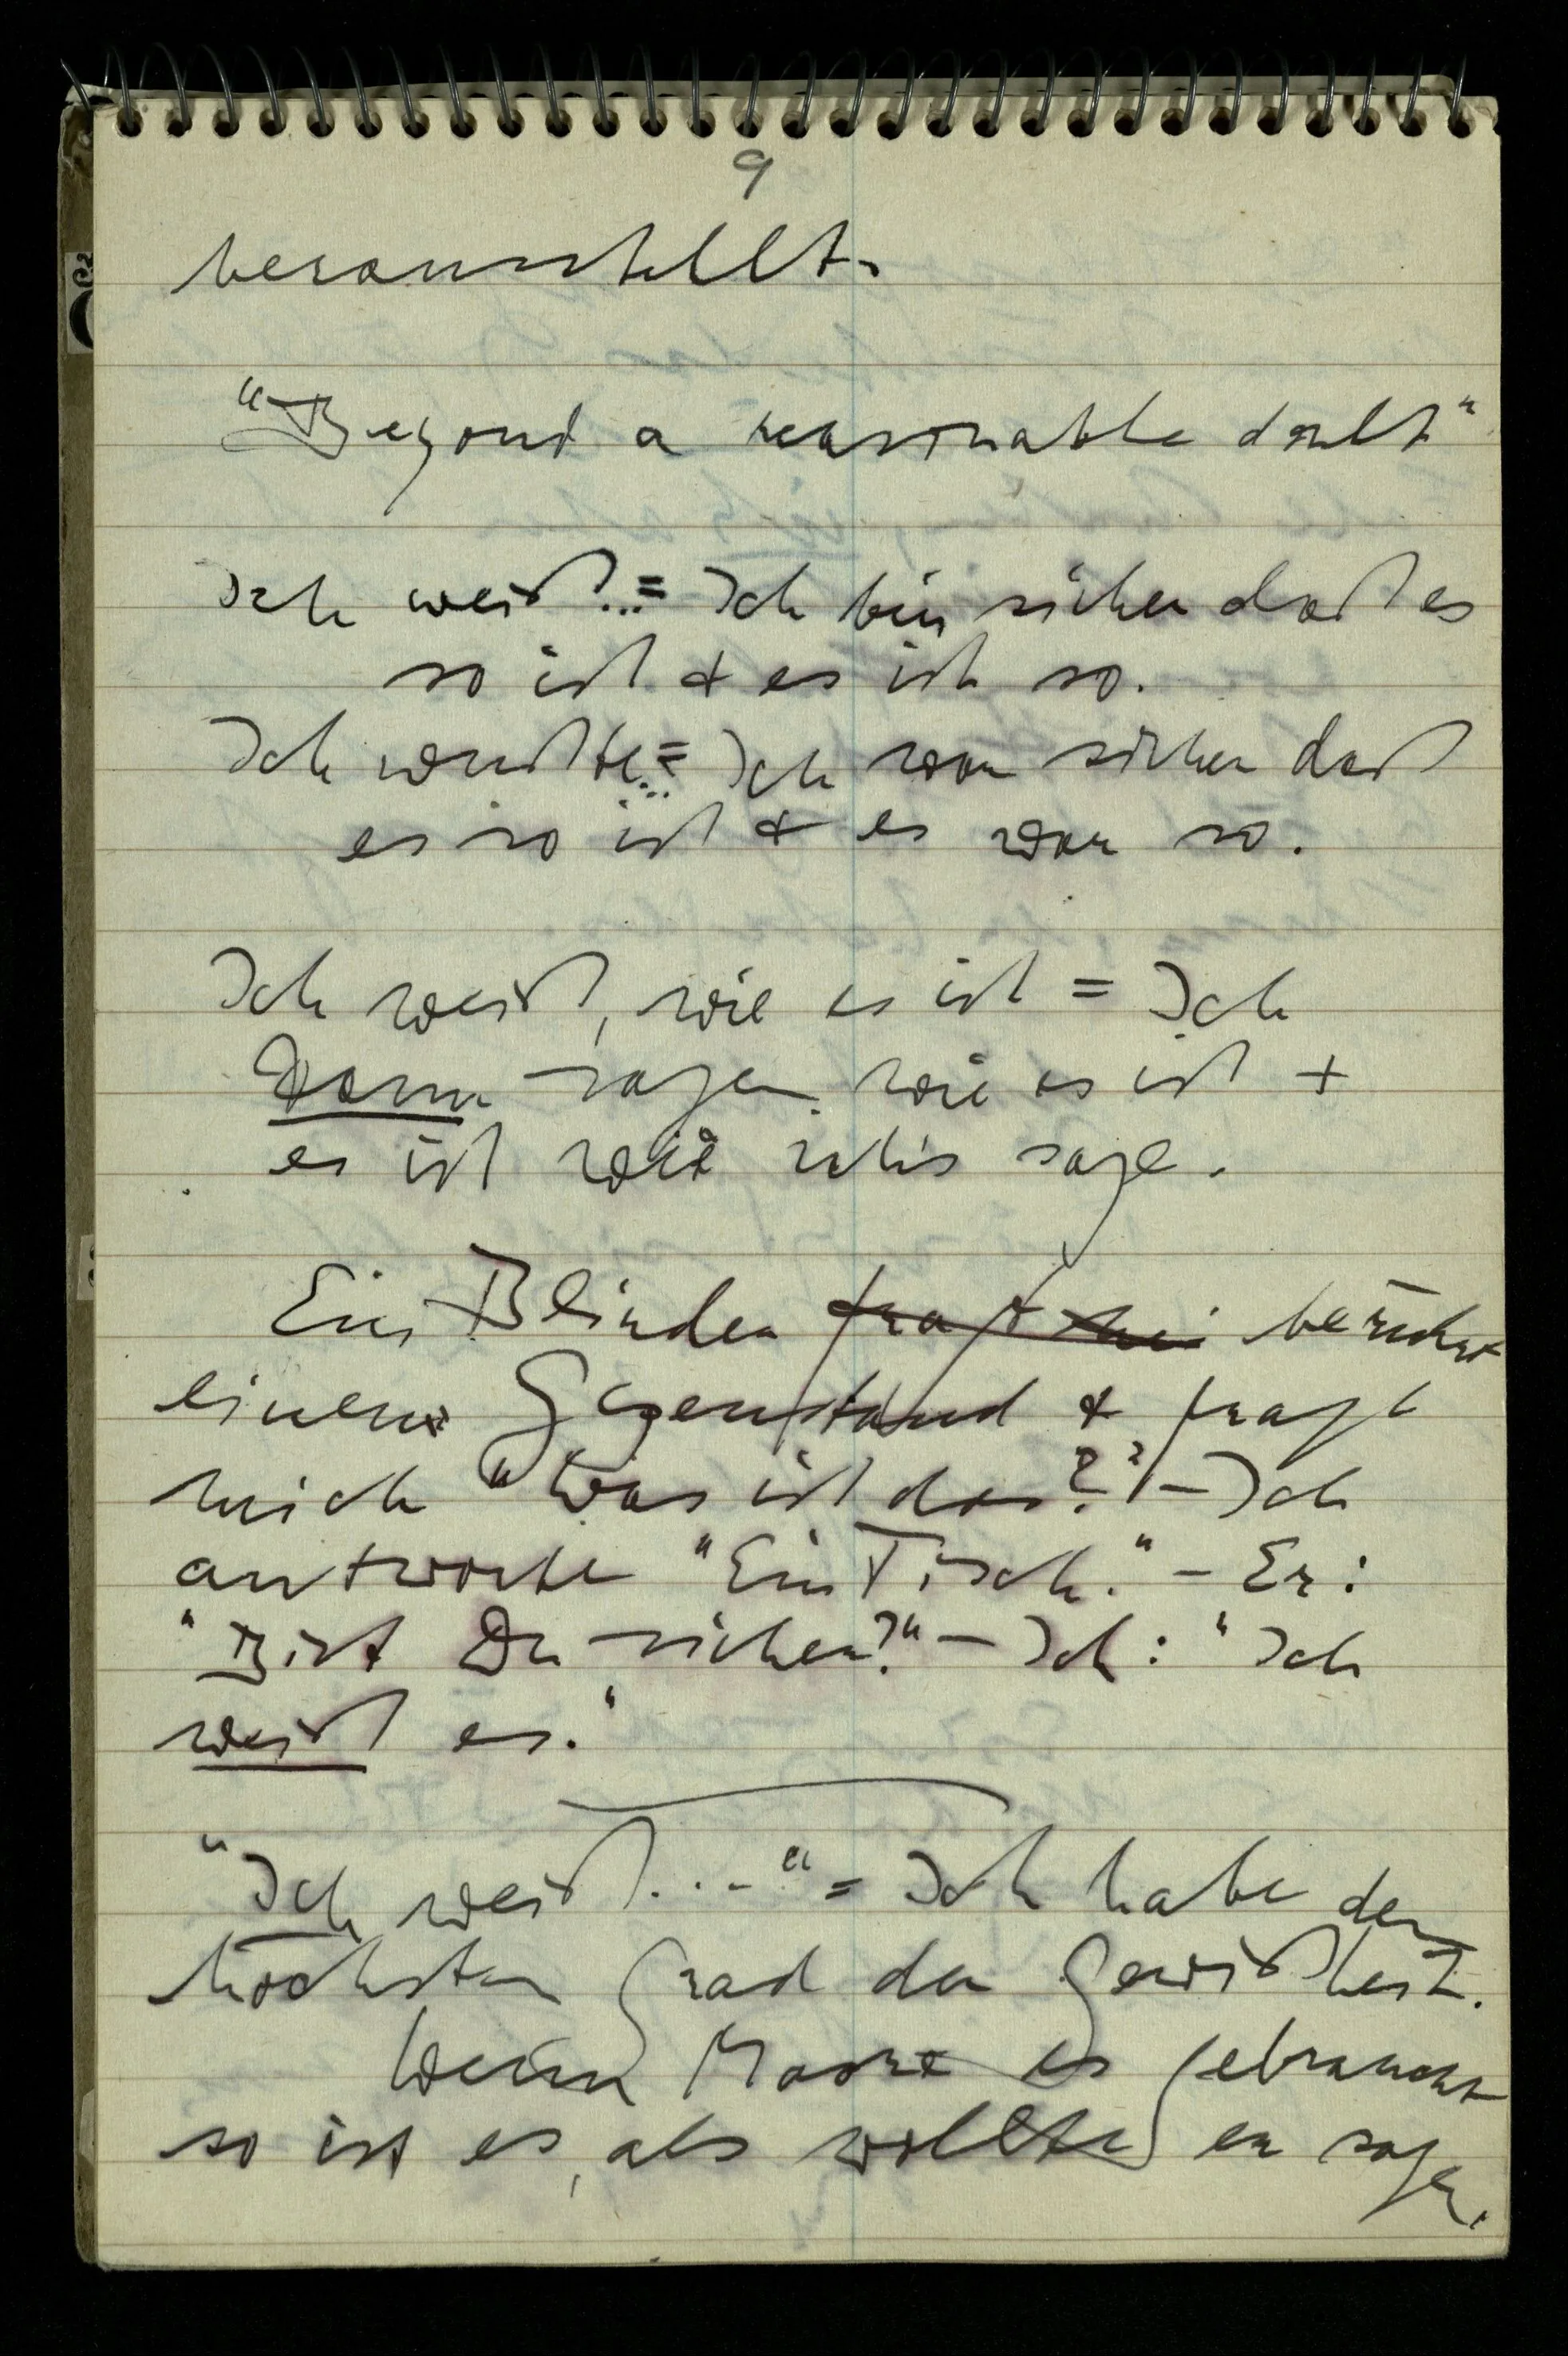 9
herausstellt.
"Beyond a reasonable doubt"
Ich weiß... = Ich bin sicher daß es
so ist & es ist so.
Ich wußte... = Ich war sicher daß
es so ist & es war so.
Ich weiß, wie es ist = Ich
kann sagen wie es ist +
es ist wie ich's sage.
Ein Blinder fragt mich berührt
einen Gegenstand & fragt
mich "Was ist das?" – Ich
antworte "Ein Tisch." – Er:
"Bist Du sicher?" – Ich: "Ich
weiß es."
"Ich weiß...." = Ich habe den
höchsten Grad der Gewißheit.
Wenn Moore es gebraucht
so ist es, als wollte er sagen: